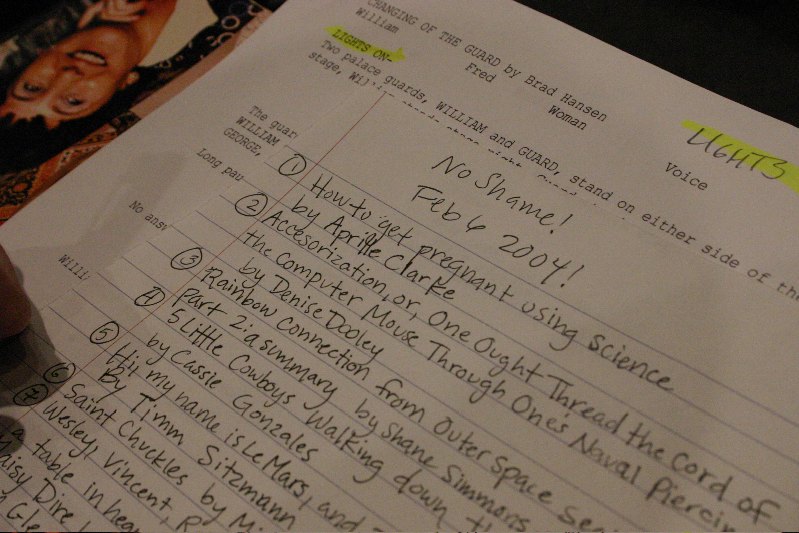 CHANGING OF THE GUARD by Brad Hansen
William
Fred
Woman
Voice
LIGHTS ON-
LIGHTS
Two palace guards, WILLIAM and GUARD, stand on either side of the
stage,
The guar
WILLIAM
GEORGE,
Long pau
No answ
Willi
No Shame!
Feb 6 2004!
1 How to get pregnant using science
by Aprille Clarke
2 Accesorization, or, One Ought Thread the Cord of
the Computer Mouse Through One's Naval Piercin
by Denise Dooley
3 Rainbow Connection from Outer Space Seri
Part 2: a summary by Shane Simmons
4 5 Little Cowboys Walking down th
by Cassie Gonzales
5 Hi, my name is Le Mars, and
by Timm Sitzmann
6 Saint Chuckles by Mi
7 Wesley, Vincent, R
a table in hea
aisy Dire
Gle